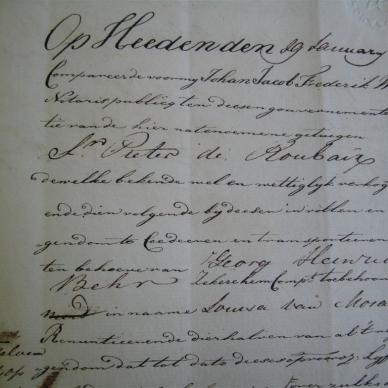 Op Heeden den 29 January
Compareerde voor my Johan Jacob Frederik W
Notaris publicq ten deesen gouvernemente
tie van de hier natenoemene getuigen
Sr. Pieter de Roubaix
dewelke bekende wel en wettiglyk verkog
ende dien volgende by deesen in vollen en
gendomte Cedeeren en transporteeren
ten behoeve van Georg Heinric
Behr Zekerehem Compt. toebehoor
in naame Louisa van Mosa
Renuntieerende dierhalven van al 't w
gendom dat tot dato deeses
over zulke